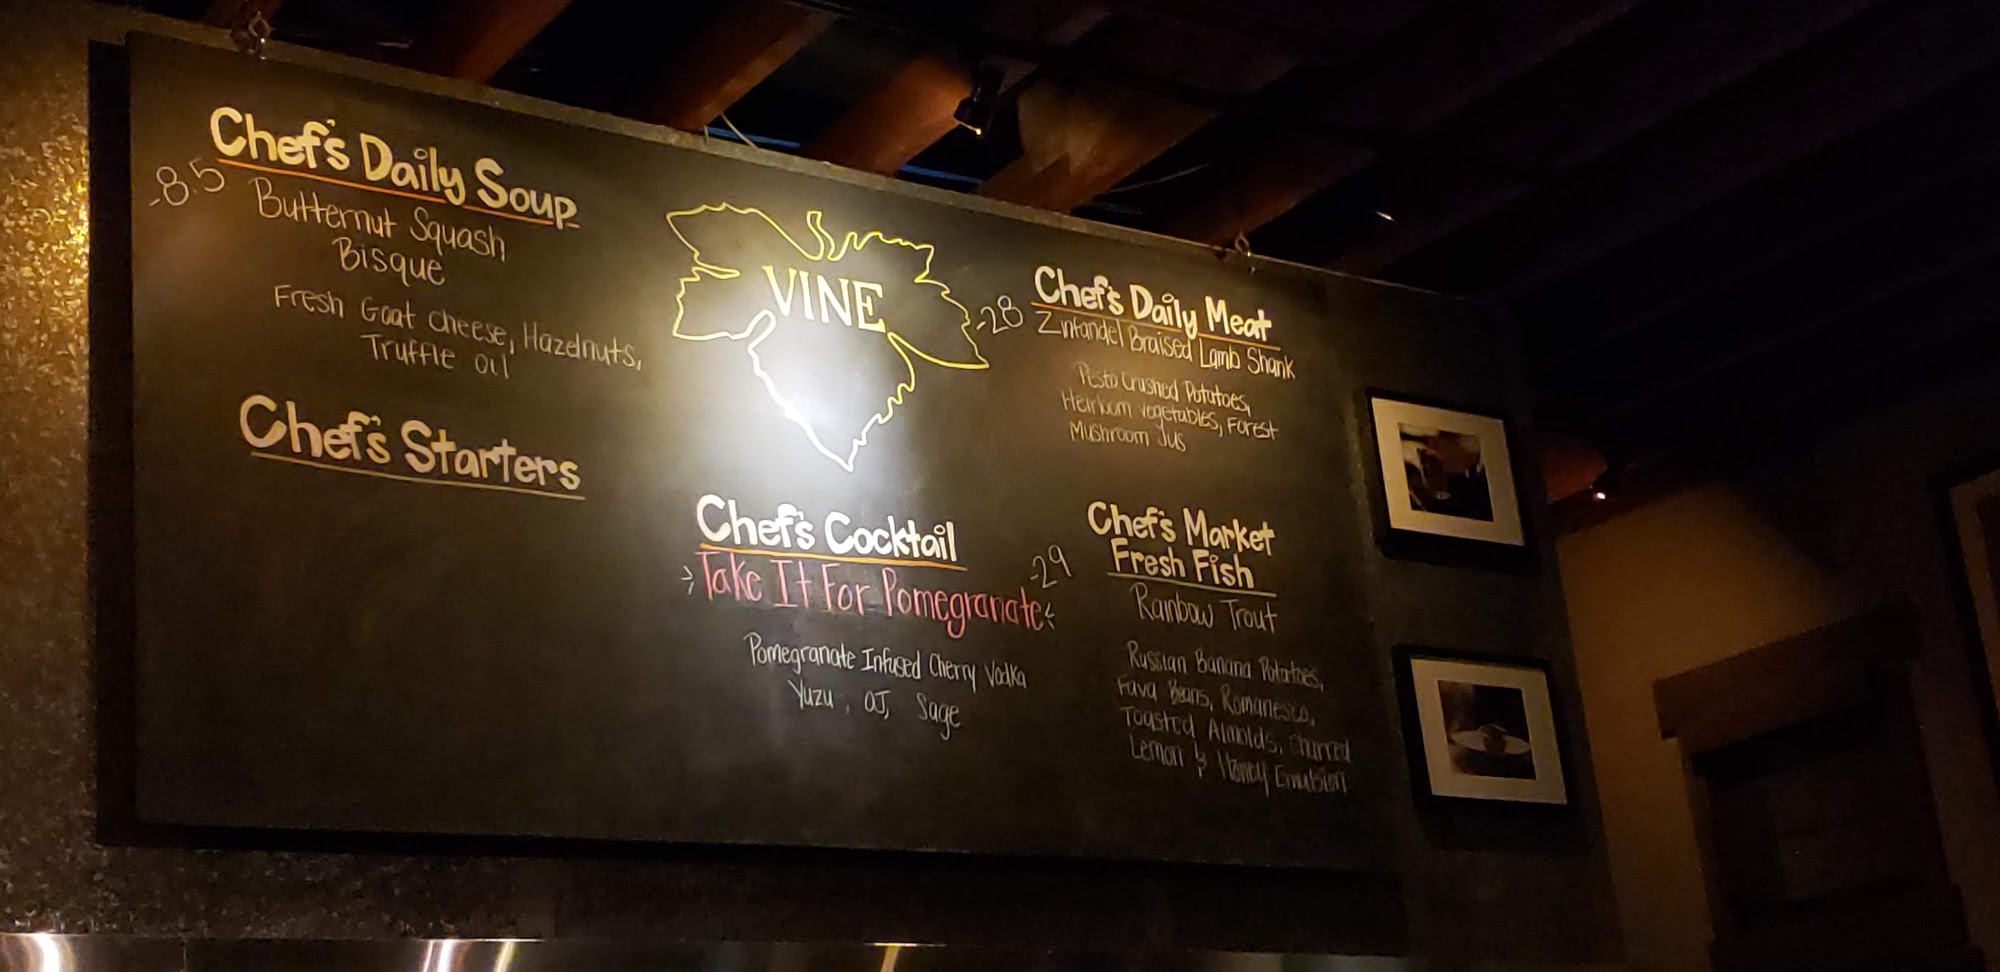 Chef's Daily Soup
-8.5 Butternut Squash
Bisque
Fresh Goat cheese, Hazelnuts,
Truffle oil
Chef's Starters
VINE
Chef's Cocktail
Take It For Pomegranate
Pomegranate Infused Cherry Vodka
Yuzu, OJ, Sage
-28 Chef's Daily Meat
Zinfandel Braised Lamb Shank
Pesto Crushed Potatoes,
Heirloom vegetables, Forest
Mushroom Jus
-29 Chef's Market
Fresh Fish
Rainbow Trout
Russian Banana Potatoes,
Fava Beans, Romanesco,
Toasted Almolds, Charred
Lemon & Honey Emulsion